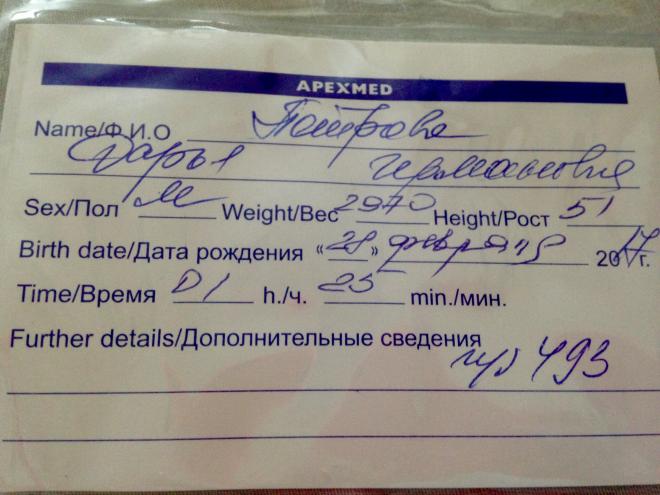 APEXMED
Name/Ф.И.О Петрова
Дарья
Sex/Пол М Weight/Вес 2970 Height/Рост 51
Birth date/Дата рождения «28» февраля 2017г.
Time/Время 01 h./ч. 25 min./мин.
Further details/Дополнительные сведения
493